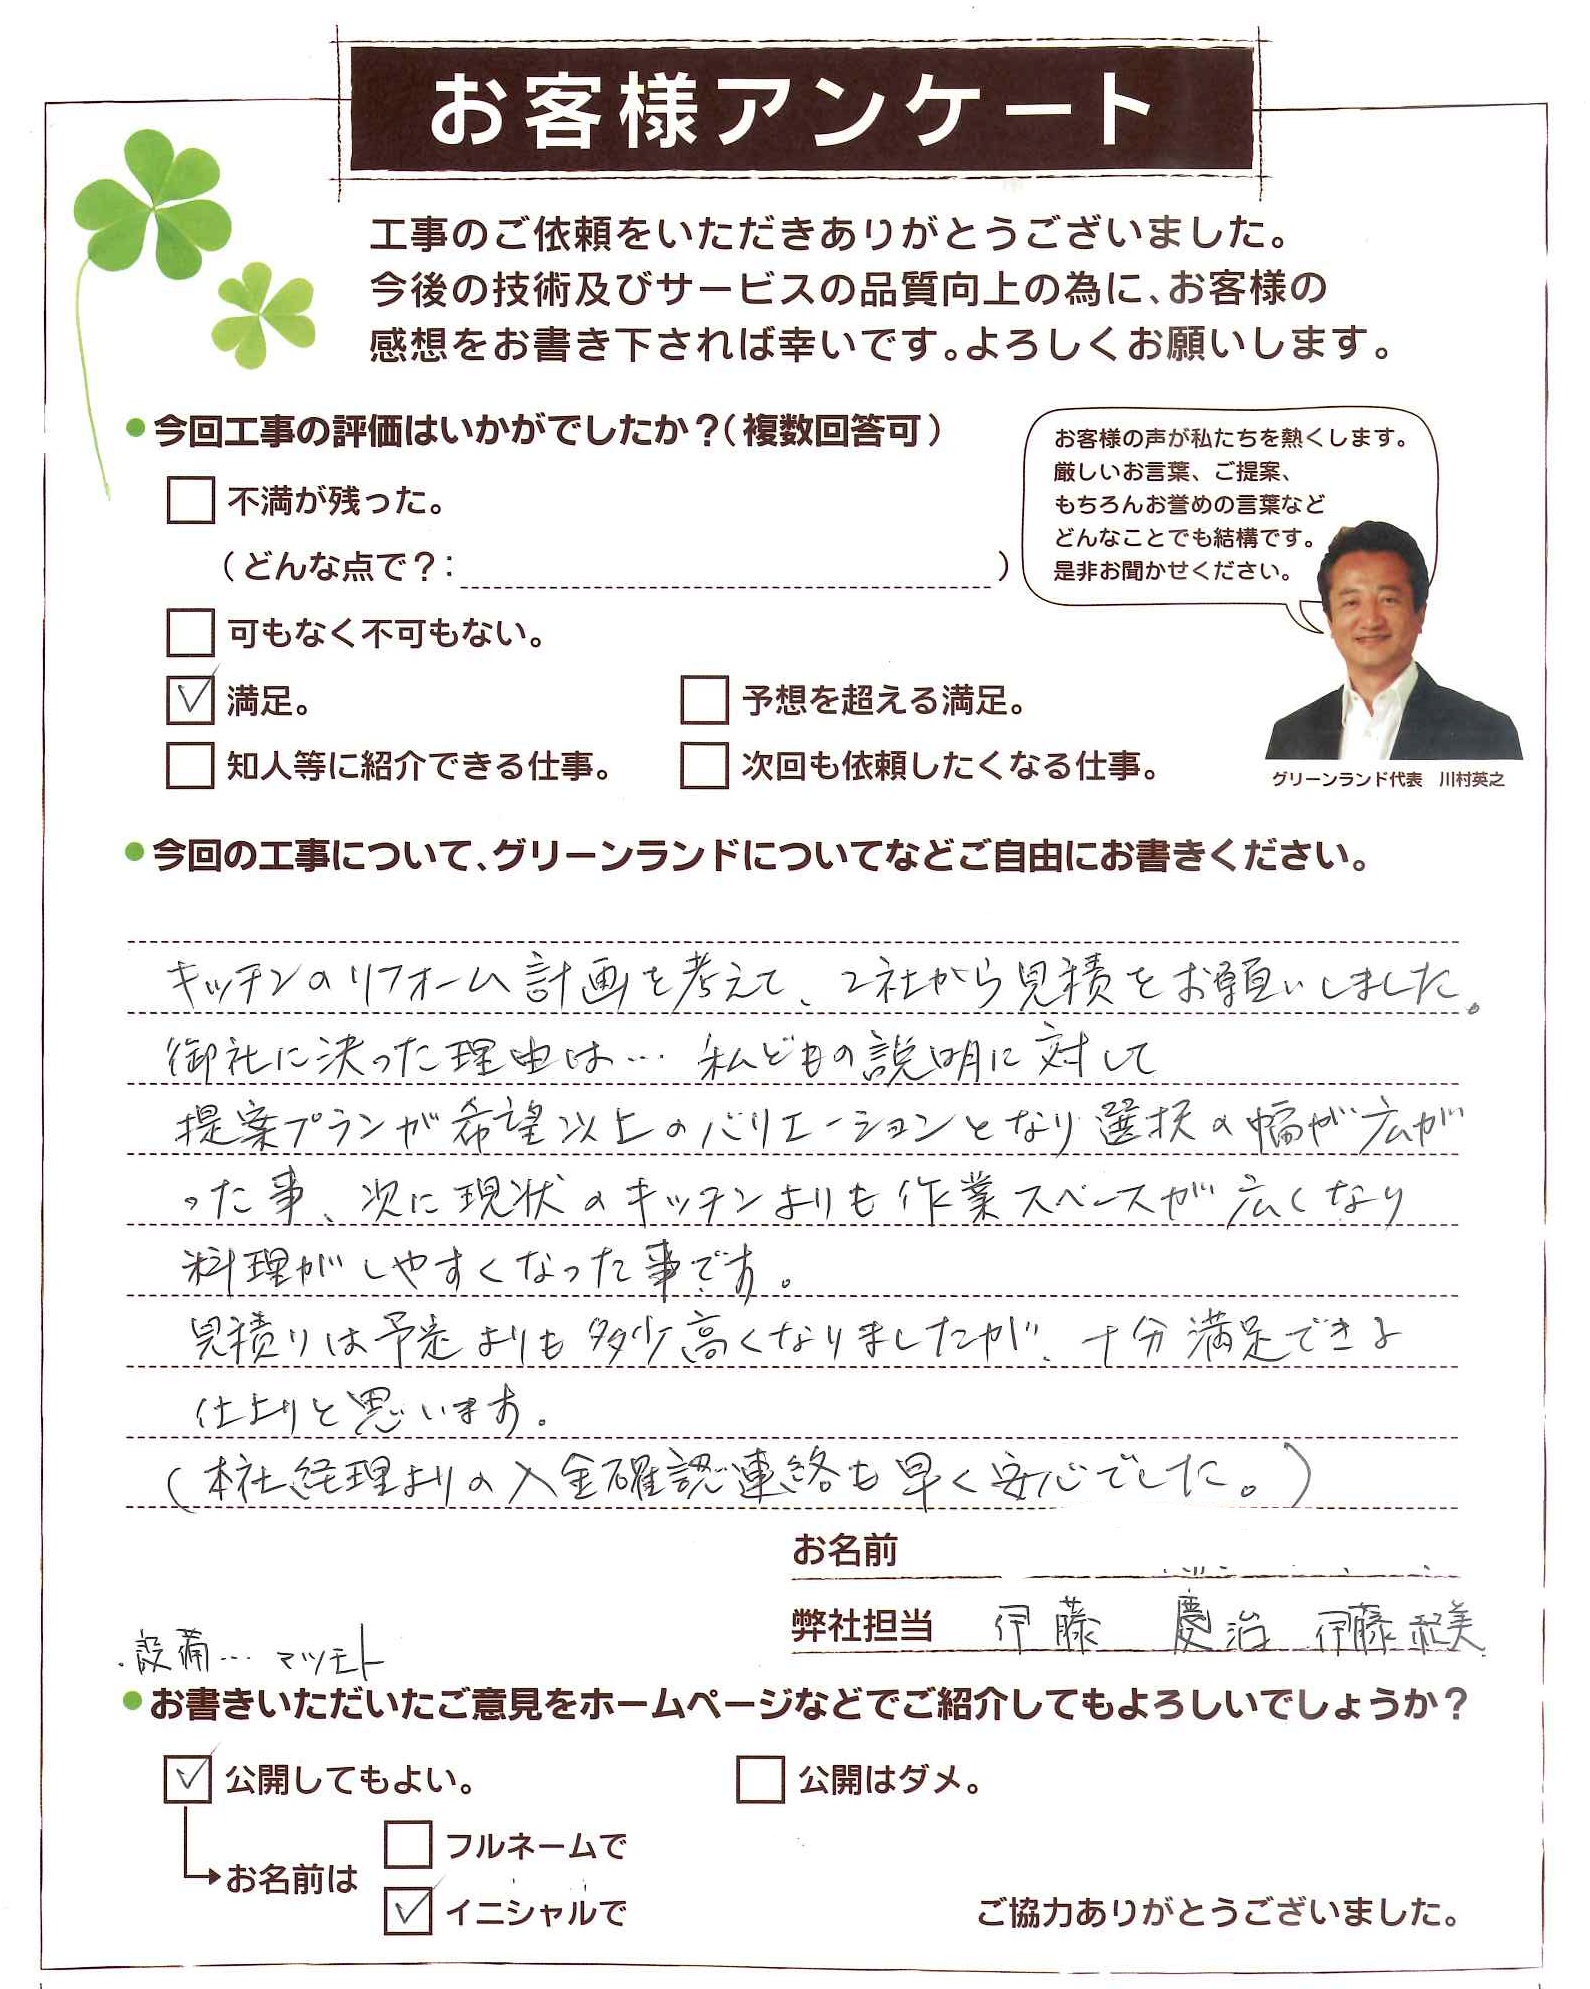 お客様アンケート
工事のご依頼をいただきありがとうございました。
今後の技術及びサービスの品質向上の為に、お客様の
感想をお書き下されば幸いです。よろしくお願いします。
今回工事の評価はいかがでしたか？（複数回答可）
不満が残った。
（どんな点で？：）
可もなく不可もない。
満足。
予想を超える満足。
知人等に紹介できる仕事。
次回も依頼したくなる仕事。
お客様の声が私たちを熱くします。
厳しいお言葉、ご提案、
もちろんお誉めの言葉など
どんなことでも結構です。
是非お聞かせください。
グリーンランド代表　川村英之
今回の工事について、グリーンランドについてなどご自由にお書きください。
キッチンのリフォーム計画を考えて、2社から見積をお願いしました。
御社に決った理由は… 私どもの説明に対して
提案プランが希望以上のバリエーションとなり選択の幅が広が
った事、次に現状のキッチンよりも作業スペースが広くなり
料理がしやすくなった事です。
見積りは予定よりも多少高くなりましたが、十分満足できる
仕上りと思います。
（本社経理よりの入金確認連絡も早く安心でした。）
お名前
弊社担当 伊藤 慶治 伊藤 美
設備… マツモト
お書きいただいたご意見をホームページなどでご紹介してもよろしいでしょうか？
公開してもよい。
公開はダメ。
お名前は
フルネームで
イニシャルで
ご協力ありがとうございました。